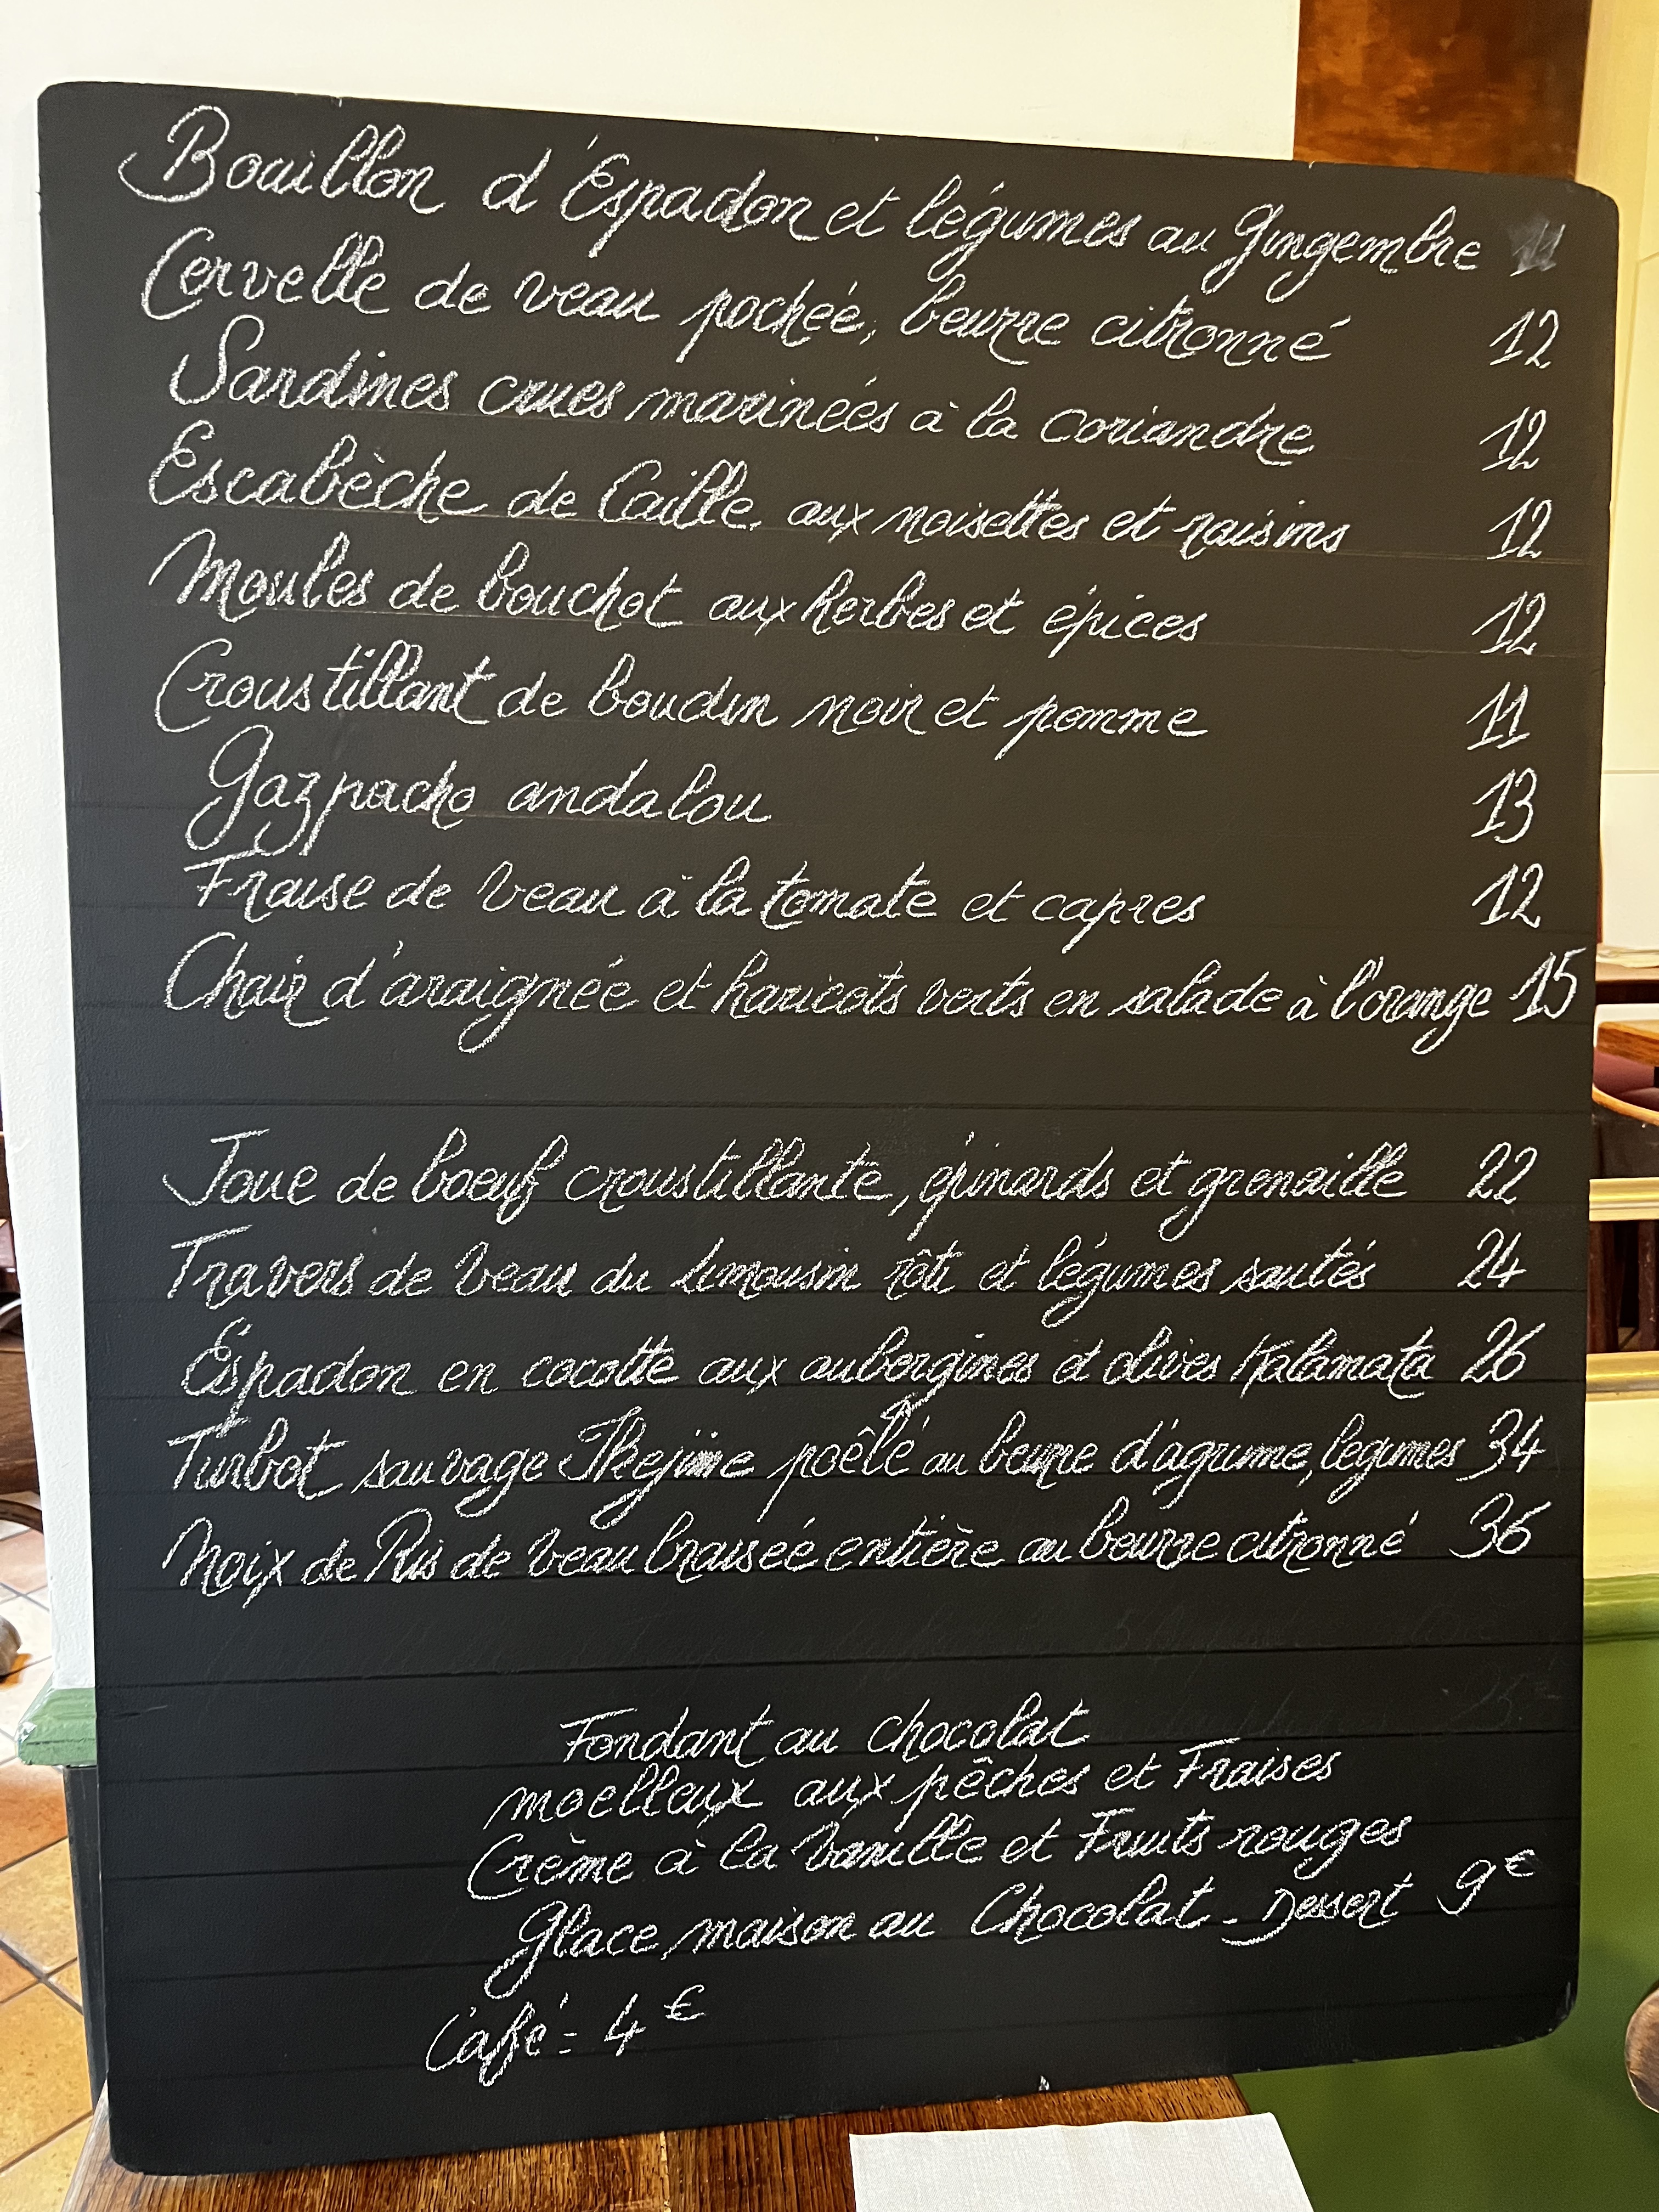 Bouillon d'Espadon et légumes au gingembre 11
Cervelle de veau pochée, beurre citronné 12
Sardines crues marinées à la coriandre 12
Escabèche de Caille, aux noisettes et raisins 12
Moules de bouchot aux herbes et épices 12
Croustillant de boudin noir et pomme 11
Gazpacho andalou 13
Fraise de veau à la tomate et capres 12
Chair d'araignée et haricots verts en salade à l'orange 15
Joue de boeuf croustillante, épinards et grenaille 22
Travers de veau du limousin rôti et légumes sautés 24
Espadon en cocotte aux aubergines et olives Kalamata 26
Turbot sauvage Ikejime poêlé au beurre d'agrume, légumes 34
Noix de Ris de veau braisée entière au beurre citronné 36
Fondant au chocolat
moelleux aux pêches et Fraises
Crème à la vanille et Fruits rouges
Glace maison au Chocolat - Dessert 9€
Café - 4€